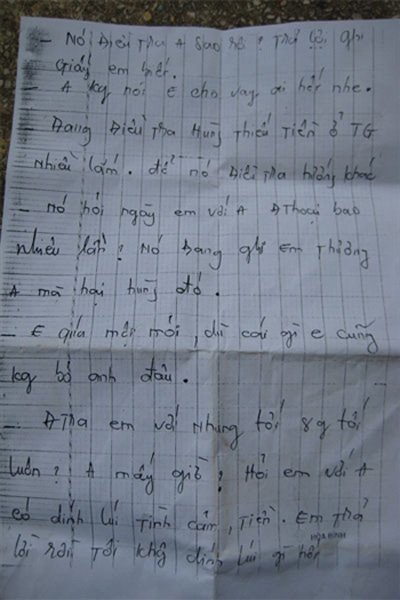 - Nó Điều Tra A sao rồi? Trả lời ghi
giấy em biết.
- A kg nói E cho vay ai hết nhe.
- Đang Điều Tra Hưng Thiếu Tiền ở TG
nhiều lắm. để nó Điều Tra hướng khác
- Nó hỏi ngày em với A ĐThoại bao
nhiêu lần? Nó Đang nghi Em Thương
A mà hại hưng đó.
- E qúa mệt mỏi, dù cái gì e cũng
kg bỏ anh đâu.
- ĐTra em với Nhung tới 8g tối
luôn? A mấy giờ? Hỏi em với A
có dính líu Tình cảm, Tiền. Em Trả
lời rồi Tôi khg dính líu gì hết
HÒA BÌNH